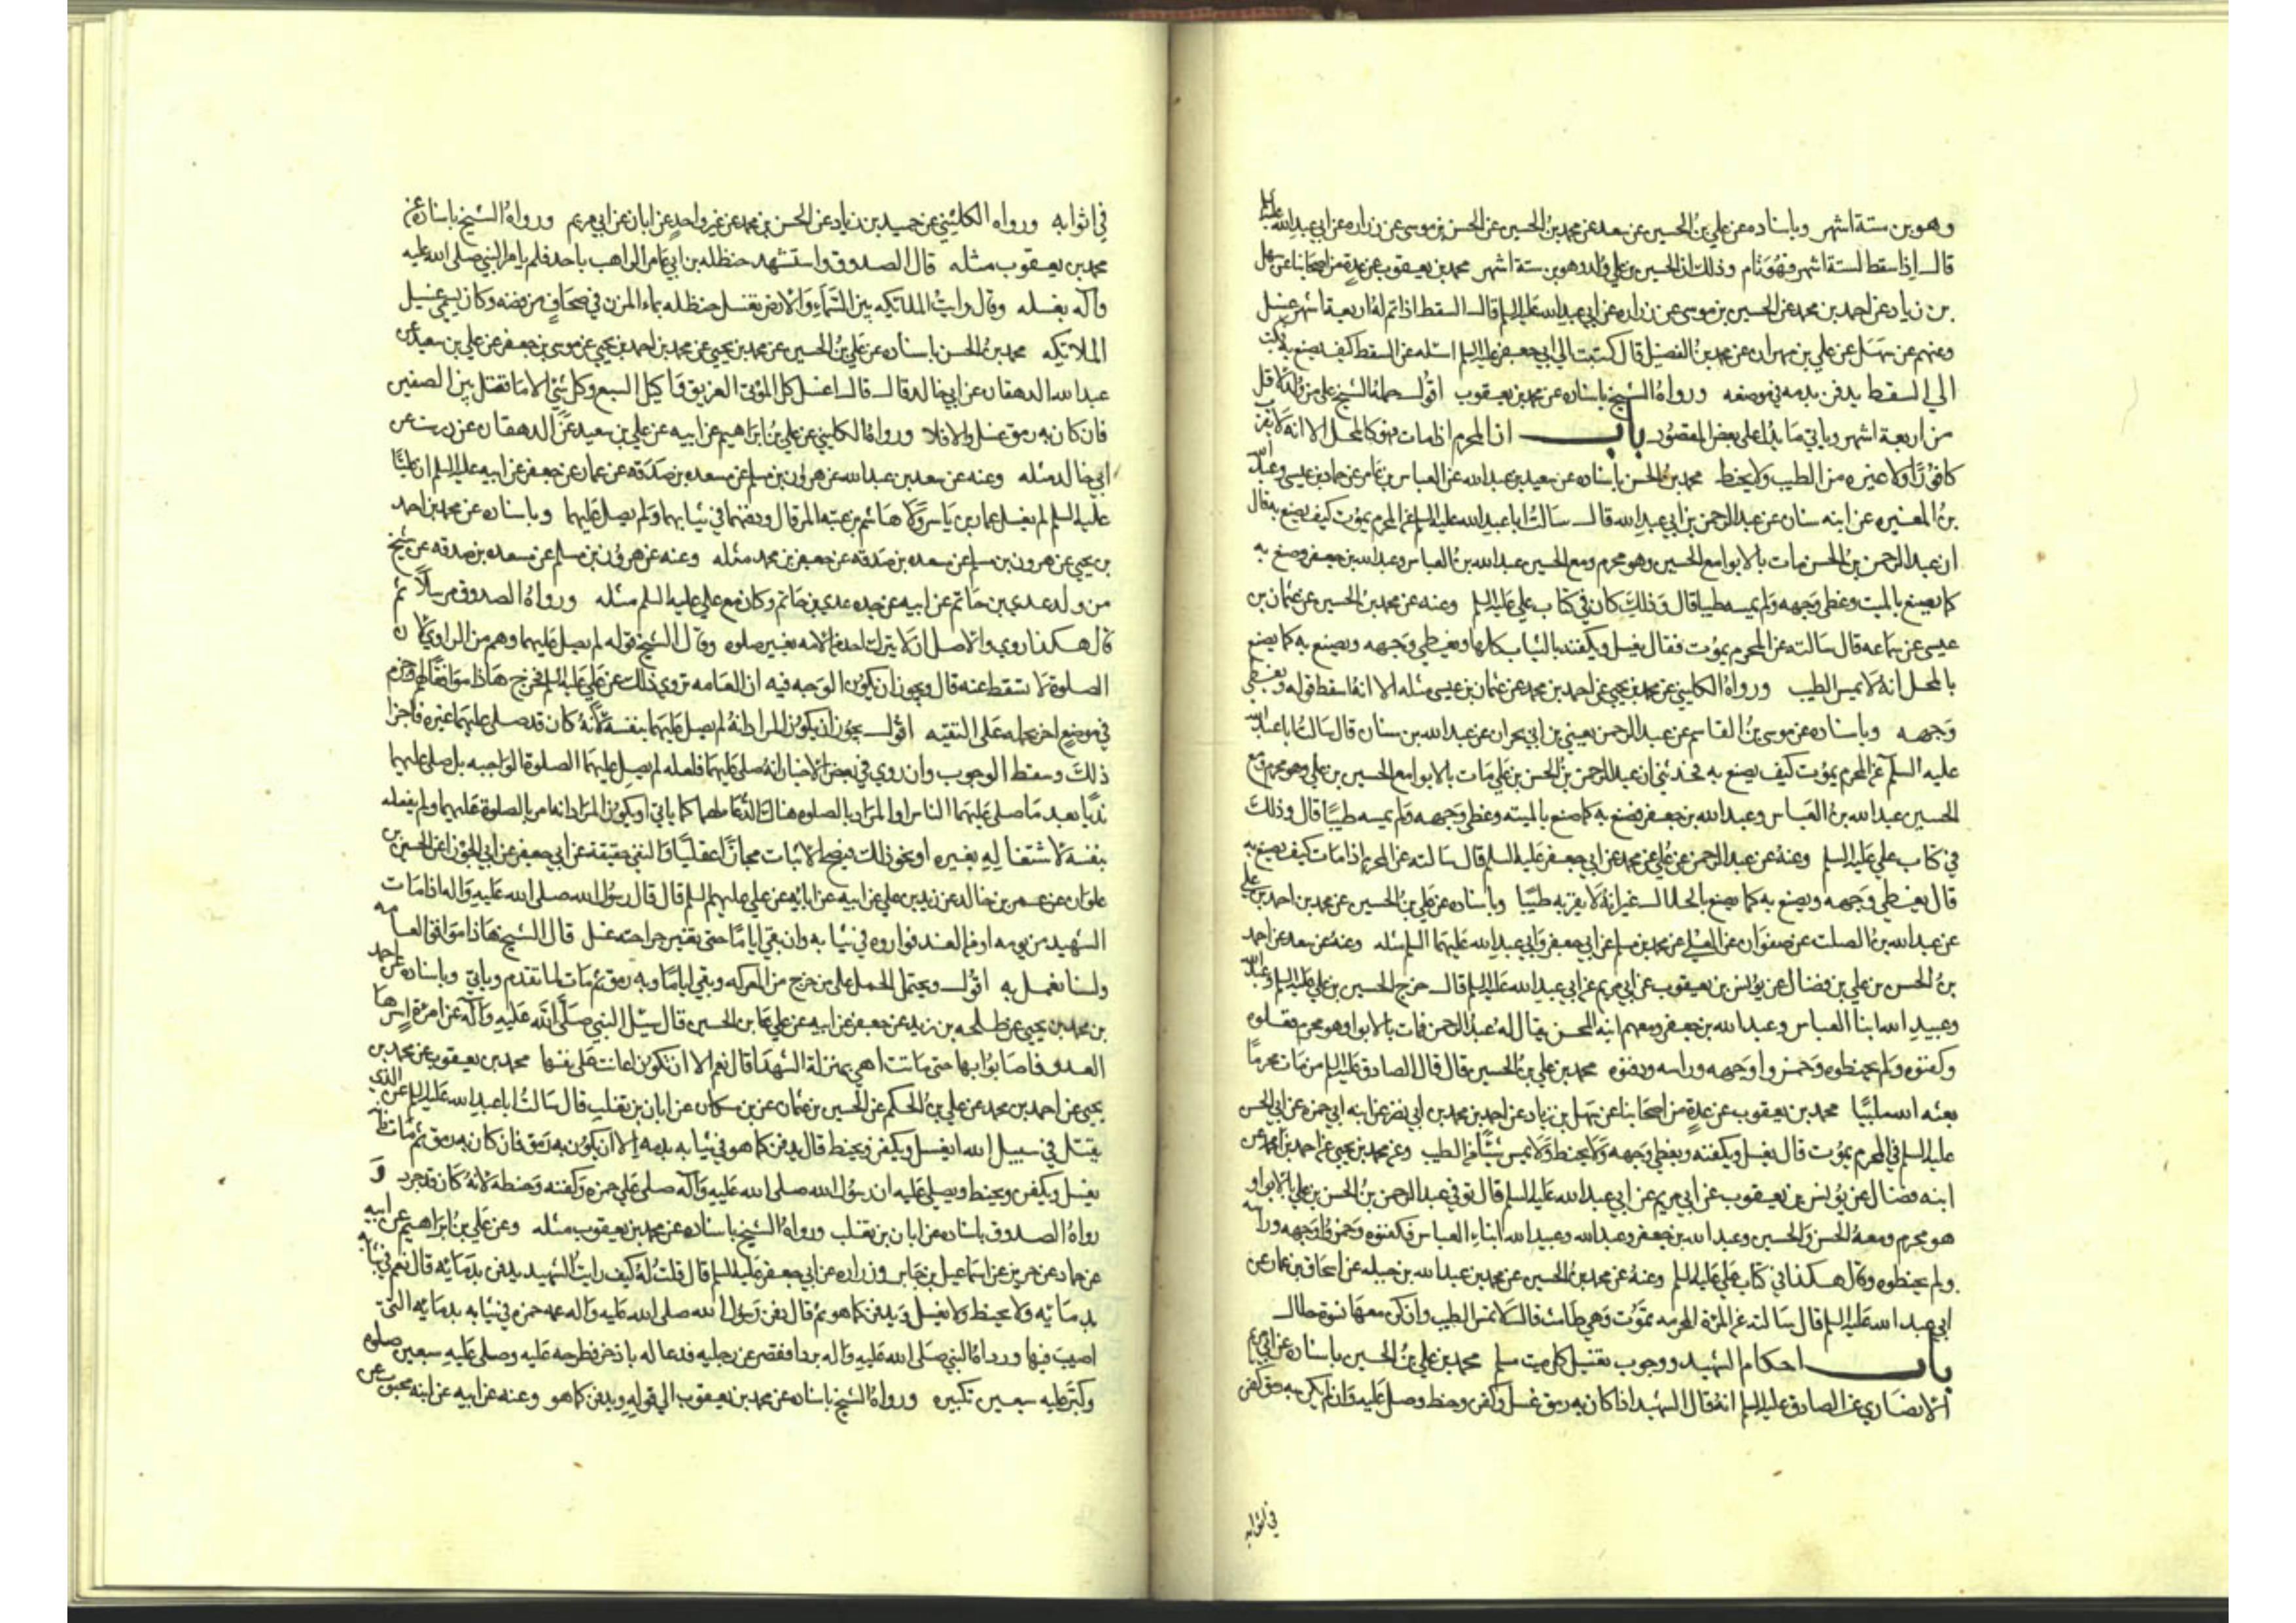 وهو بن ستة اشهر وباسناده عن علي بن الحسين عن سعد عن محمد بن الحسين عن الحسن بن موسى عن زراره عن ابي عبد الله عليه
قال اذا سقط لستة اشهر فهو تام وذلك ان الحسين بن علي ولد وهو بن ستة اشهر محمد بن يعقوب عن عدة من اصحابنا عن سهل
بن زياد عن احمد بن محمد عن الحسين بن موسى عن زراره عن ابي عبد الله عليه السلم قال السقط اذا تم له اربعة اشهر غسل
وعنهم عن سهل عن علي بن مهران عن محمد بن الفضيل قال كتبت الى ابي جعفر عليه السلم اسئله عن السقط كيف يصنع به فكتب
الي السقط يدفن بدمه في موضعه ورواه الشيخ باسناده عن محمد بن يعقوب اقول حمله الشيخ على من ولد لاقل
من اربعة اشهر وياتي ما يدل على بعض المقصود باب ان المحرم اذا مات فهو كالمحل الا انه لا يقرب
كافورا ولا غيره من الطيب ولا يحنط محمد بن الحسن باسناده عن سعيد بن عبد الله عن العباس بن عامر عن حماد بن عيسى وعبد الله
بن المغيره عن ابنه سنان عن عبد الرحمن بن ابي عبد الله قال سالت ابا عبد الله عليه السلم عن المحرم يموت كيف يصنع به فقال
ان عبد الرحمن بن الحسن مات بالابوا مع الحسين وهو محرم ومع الحسين عبد الله بن العباس وعبد الله بن جعفر وصنع به
كما يصنع بالميت وغطى وجهه ولم يمسه طيبا قال وذلك كان في كتاب علي عليه السلم وعنه عن محمد بن الحسين عن عثمان بن
عيسى عن سماعه قال سالته عن المحرم يموت فقال يغسل ويكفن بالثياب كلها ويغطي وجهه ويصنع به كما يصنع
بالمحل انه لا يمس الطيب ورواه الكليني عن محمد بن يحيى عن احمد بن محمد عن عثمان بن عيسى مثله الا انه اسقط قوله ويغطي
وجهه وباسناده عن موسى بن القاسم عن عبد الرحمن يعني بن ابي نجران عن عبد الله بن سنان قال سالت ابا عبد الله
عليه السلم عن المحرم يموت كيف يصنع به فحدثني ان عبد الرحمن بن الحسن بن علي مات بالابوا مع الحسين بن علي وهو محرم ومع
الحسين عبد الله بن العباس وعبد الله بن جعفر فصنع به كما صنع بالميته وغطى وجهه ولم يمسه طيبا قال وذلك
في كتاب علي عليه السلم وعنه عن عبد الرحمن عن علي عن محمد عن ابي جعفر عليه السلم قال سالته عن المحرم اذا مات كيف يصنع به
قال يغطي وجهه ويصنع به كما يصنع بالحلال غير انه لا يقربه طيبا وباسناده عن علي بن الحسين عن محمد بن احمد بن علي
عن عبد الله بن الصلت عن صفوان عن العلا عن محمد بن مسلم عن ابي جعفر وابي عبد الله عليهما السلم مثله وعنه عن سعد عن احمد
بن الحسن بن علي بن فضال عن يونس بن يعقوب عن ابي مريم عن ابي عبد الله عليه السلم قال خرج الحسين بن علي عليه السلم وعبد الله
وعبيد الله ابنا العباس وعبد الله بن جعفر ومعهم ابنه للحسن يقال له عبد الرحمن فمات بالابوا وهو محرم فغسلوه
وكفنوه ولم يحنطوه وخمروا وجهه وراسه ودفنوه محمد بن علي بن الحسين قال قال الصادق عليه السلم من مات محرما
بعثه الله ملبيا محمد بن يعقوب عن عدة من اصحابنا عن سهل بن زياد عن احمد بن محمد بن ابي نصر عن ابنه ابي حمزه عن ابي الحسن
عليه السلم في المحرم يموت قال يغسل ويكفن ويغطي وجهه ولا يحنط ولا يمس شيئا من الطيب وعن محمد بن يحيى عن احمد بن محمد عن
ابنه فضال عن يونس بن يعقوب عن ابي مريم عن ابي عبد الله عليه السلم قال توفي عبد الرحمن بن الحسن بن علي بالابوا و
هو محرم ومعه الحسن والحسين وعبد الله بن جعفر وعبد الله وعبيد الله ابناء العباس فكفنوه وخمروا وجهه وراسه
ولم يحنطوه وقال هكذا في كتاب علي عليه السلم وعنه عن محمد بن الحسين عن محمد بن عبد الله بن جبله عن اسحاق بن عمار عن
ابي عبد الله عليه السلم قال سالته عن المرئة المحرمه تموت وهي طامث قال لا تمس الطيب وان كن معها نسوة حلال
باب احكام الشهيد ووجوب تغسيل كل ميت مسلم محمد بن علي بن الحسين باسناده عن ابي مريم
الانصاري عن الصادق عليه السلم انه قال الشهيد اذا كان به رمق غسل وكفن وحنط وصلي عليه وان لم يكن به رمق كفن
في اثوابه
في اثوابه ورواه الكليني عن حميد بن زياد عن الحسن بن محمد عن غير واحد عن ابان عن ابي مريم ورواه الشيخ باسناده عن
محمد بن يعقوب مثله قال الصدوق واستشهد حنظله بن ابي عامر الراهب باحد فلم يامر النبي صلى الله عليه
وآله بغسله وقال رايت الملائكه بين السماء والارض تغسل حنظله بماء المزن في صحاف من فضه وكان يسمى غسيل
الملائيكه محمد بن الحسن باسناده عن علي بن الحسين عن محمد بن يحيى عن محمد بن احمد بن يحيى عن موسى بن جعفر عن علي بن سعيد عن
عبد الله الدهقان عن ابي خالد قال قال اغسل كل الموتى الغريق واكيل السبع وكل شيء الا ما تقتل بين الصفين
فان كان به رمق غسل والا فلا ورواه الكليني عن علي بن ابراهيم عن ابيه عن علي بن سعيد عن الدهقان عن درست عن
ابي خالد مثله وعنه عن سعد بن عبد الله عن هرون بن مسلم عن مسعده بن صدقه عن عمار عن جعفر عن ابيه عليه السلم ان عليا
عليه السلم لم يغسل عمار بن ياسر ولا هاشم بن عتبه المرقال ودفنهما في ثيابهما ولم يصل عليهما وباسناده عن محمد بن احمد
بن يحيى عن هرون بن مسلم عن مسعده بن صدقه عن جعفر بن محمد مثله وعنه عن هرون بن مسلم عن مسعده بن صدقه عن شيخ
من ولد عدي بن حاتم عن ابيه عن جده عدي بن حاتم وكان مع علي عليه السلم مثله ورواه الصدوق مرسلا ثم
قال هكذا روي والاصل ان لا يترك احد من الامه بغير صلوه وقال الشيخ قوله لم يصل عليهما وهم من الراوي لان
الصلوة لا تسقط عنه قال ويجوز ان يكون الوجه فيه ان العامه تروي ذلك عن علي عليه السلم فخرج هاذا موافقا لهم وجزم
في موضع اخر بحمله على التقيه اقول يجوز ان يكون المراد انه لم يصل عليهما بنفسه لانه كان قد صلى عليهما غيره فاجزا
ذلك وسقط الوجوب وان روي في بعض الاخبار انه صلى عليهما فلعله لم يصل عليهما الصلوة الواجبه بل صلى عليهما
ندبا بعد ما صلى عليهما الناس او المراد بالصلوه هناك الدعا لهما كما ياتي او يكون المراد انه امر بالصلوة عليهما ولم يفعله
بنفسه لاشتغاله بغيره او نحو ذلك فيصح الاثبات مجازا عقليا والنفي حقيقة عن ابي جعفر عن ابي الجوزا عن الحسين بن
علوان عن عمرو بن خالد عن زيد بن علي عن ابيه عن ابائه عن علي عليهم السلم قال قال رسول الله صلى الله عليه واله اذا مات
الشهيد من يومه او من الغد فواروه في ثيابه وان بقي اياما حتى تغير جراحته غسل قال الشيخ هاذا موافق العامه
ولسنا نعمل به اقول ويحتمل الحمل على من خرج من المعركه وبقي اياما وبه رمق ثم مات لما تقدم وياتي وباسناده عن احمد
بن محمد بن يحيى عن طلحه بن زيد عن جعفر عن ابيه عن علي بن الحسين قال سئل النبي صلى الله عليه وآله عن امرئة اسرها
العدو فاصابوا بها حتى ماتت اهي بمنزلة الشهدا قال نعم الا ان تكون اعانت على نفسها محمد بن يعقوب عن محمد بن
يحيى عن احمد بن محمد عن علي بن الحكم عن الحسين بن عثمان عن بن مسكان عن ابان بن تغلب قال سالت ابا عبد الله عليه السلم عن الذي
يقتل في سبيل الله ايغسل ويكفن ويحنط قال يدفن كما هو في ثيابه بدمه الا ان يكون به رمق فان كان به رمق ثم مات فانه
يغسل ويكفن ويحنط ويصلى عليه ان رسول الله صلى الله عليه وآله صلى على حمزه وكفنه وحنطه لانه كان قد جرد و
رواه الصدوق باسناده عن ابان بن تغلب ورواه الشيخ باسناده عن محمد بن يعقوب مثله وعن علي بن ابراهيم عن ابيه
عن حماد عن حريز عن اسماعيل بن جابر وزراره عن ابي جعفر عليه السلم قال قلت له كيف رايت الشهيد يدفن بدمائه قال نعم في ثيابه
بدمائه ولا يحنط ولا يغسل ويدفن كما هو ثم قال دفن رسول الله صلى الله عليه واله عمه حمزه في ثيابه بدمائه التي
اصيب فيها ورداه النبي صلى الله عليه واله بردا فقصر عن رجليه فدعا له باذخر فطرحه عليه وصلى عليه سبعين صلوه
وكبر عليه سبعين تكبيره ورواه الشيخ باسناده عن محمد بن يعقوب الى قوله ويدفن كما هو وعنه عن ابيه عن ابنه محبوب عن